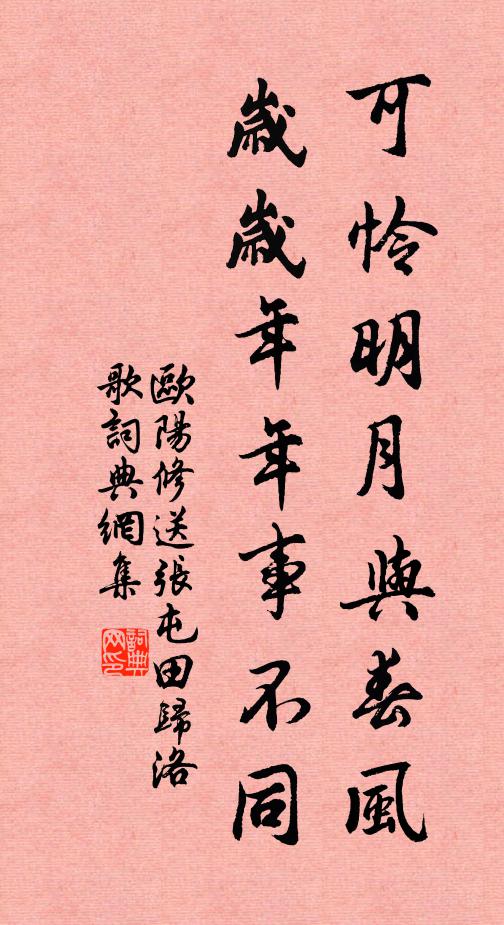 可憐明月與春風
歲歲年年事不同
歐陽修送張屯田歸洛
歌詞典網集
詞典
网印